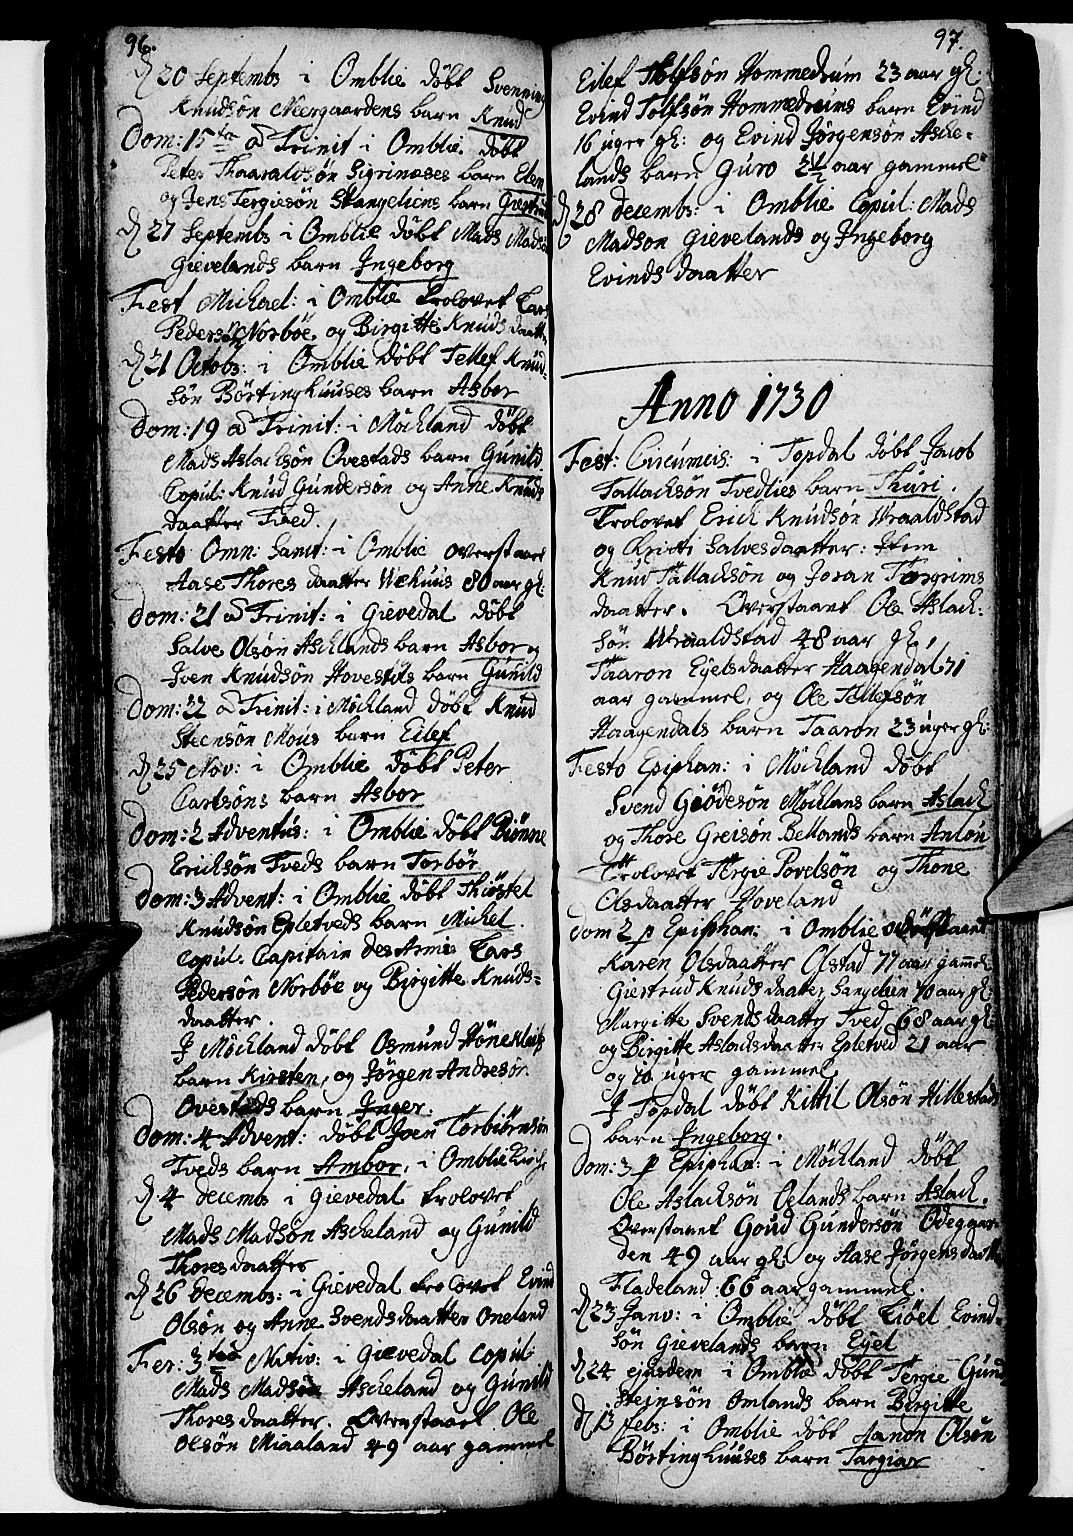 96.
d 20 Septembs i Omblie döbt Svenning
Knudsön Neergaardens barn Knud
Dom: 15ta a Trinit i Omblie. döbt
Peter Thaaraldsön Sigrinæses barn Elen
og Jens Tergiesön Stangeliens barn Giertrud
d 27 Septembs i Omblie döbt Mads Mads
Gievelands barn Ingeborg
Fest Michael: i Omblie trolovet Lars
Pedersön Norböe. og Birgitte Knuds daatter
d 21 Octobs: i Omblie döbt Tellef Knud-
sön Börtinghuuses barn Asbor
Dom: 19 a Trinit: i Möckland döbt
Mads Aslachsön Ovestads barn Gunild
Copul: Knud Gundersön og Anne Knuds
daatter Tved.
Festo Omn: Sanct: i Omblie overstaaet
Aase Thores daatter Wehuus 80 aar gl:
Dom: 21 a Trinit: i Gievedal döbt
Salve Olsön Aschlands barn Asbor og
Iven Knudsön Hovestöls barn Gunild
Dom: 22 a Trinit: i Möckland döbt Knud
Steensön Mous barn Eilef
d 25 Nov: i Omblie döbt Peter
Carlsöns barn Asbor
Dom: 2 Adventus: i Omblie döbt Biönne
Ericksön Tveds barn Torbör
Dom: 3 Advent: i Omblie döbt Thröstel
Knudsön Epletveds barn Michel.
Copul. Capitain des Armes Lars
Pedersön Norböe og Birgitte Knuds-
daatter.
I Möckland döbt Osmund Hönekleifs
barn Kirsten, og Jörgen Andresön
Ovestads barn Inger.
Dom: 4 Advent: döbt Joen Torbiörnsön
Tveds barn Ambor, i Omblie Kirche
d. 4 decembs i Gievedal trolovet
Mads Madsön Ascheland og Gunild
Thores daatter
d 26 decembs: i Gievedal trolovet Evind
Olsön og Anne Svends daatter Oneland
Fer: 3tia Nativ: i Gievedal Copul
Mads Madsön Ascheland og Gunild
Thores daatter. Overstaaet Ole
Olsön Miaaland 49 aar gammel
97.
Eilef Tolfsön Hommedrum 23 aar gl:
Evind Tolfsön Hommedrums barn Evind
16 uger gl: og Evind Jörgensön Asche-
lands barn Guro 2½ aar gammel
d 28 decembs: i Omblie Copul: Mads
Madson Gievelands og Ingeborg
Evinds daatter
Anno 1730
Fest: Circumcis: i Topdal döbt Jacob
Tallachsön Tvedlies barn Thuri.
Trolovet Erich Knudson Wraaldstad
og Christi Salves daatter: Item
Knud Tallachsön og Joran Torgrims
daatter. Overstaaet Ole Aslach-
sön Wraaldstad 48 aar gl,
Taaron Eyelsdaatter Haagendal 71
aar gammel, og Ole Tellefsön
Haagendals barn Taaron 23 uger gl:
Festo Epiphan: i Möckland döbt
Svend Giödesön Möcklans barn Aslach
og Thore Greisön Bellands barn Anton
Trolovet Tergie Povelsön og Thone
Olsdaatter Hoveland
Dom 2 p Epiphan: i Omblie overstaaet
Karen Olsdaatter Olstad 77 aar gammel
Giertrud Knuds daatter Sangelien 70 aar gl:
Margitte Svends daatter Tved 68 aar gl:
og Birgitte Aslachsdaatter Epletved 21 aar
og 10 uger gammel
I Topdal döbt Kittil Olsön Hillestads
barn Ingeborg.
Dom: 3 p Epiphan: i Möckland döbt
Ole Aslachsön Oelands barn Aslach.
Overstaaet Goud Gundersön Ödegaar-
den 49 aar gl: og Aase Jörgens daatter
Fladeland: 66 aar gammel.
d 23 Janv: i Omblie döbt Liöel Evind-
sön Gievelands barn Eyel
d 24 ejusdem i Omblie döbt Tergie Gund
steinsön Omlands barn Birgitte
d 13 Febr: i Omblie döbt Aanon Olsön
Börtinghuuses barn Targiar